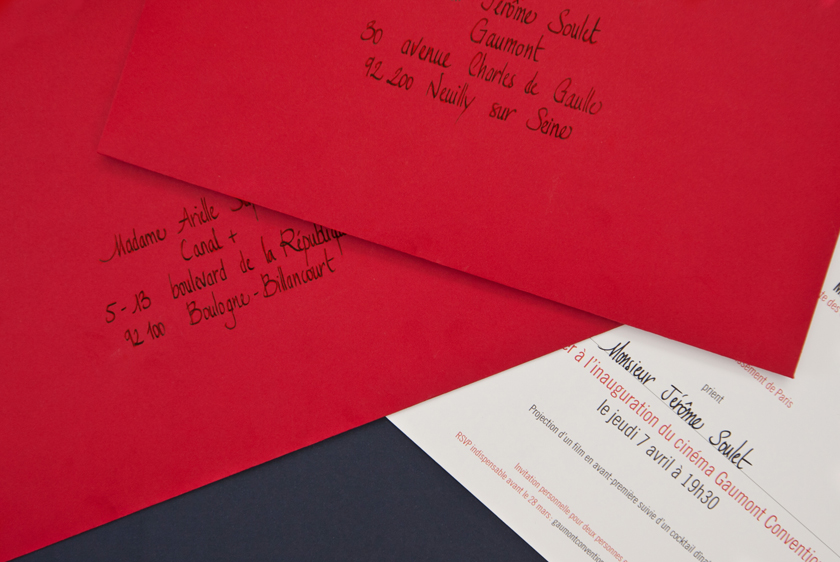 Jérôme Soulet
Gaumont
30 avenue Charles de Gaulle
92 200 Neuilly sur Seine
Madame Arielle
Canal +
5-13 boulevard de la République
92 100 Boulogne-Billancourt
prient
Monsieur Jérôme Soulet
er à l'inauguration du cinéma Gaumont Convention
le jeudi 7 avril à 19h30
Projection d'un film en avant-première suivie d'un cocktail
Invitation personnelle pour deux personnes
RSVP indispensable avant le 28 mars : gaumontconvention
de Paris